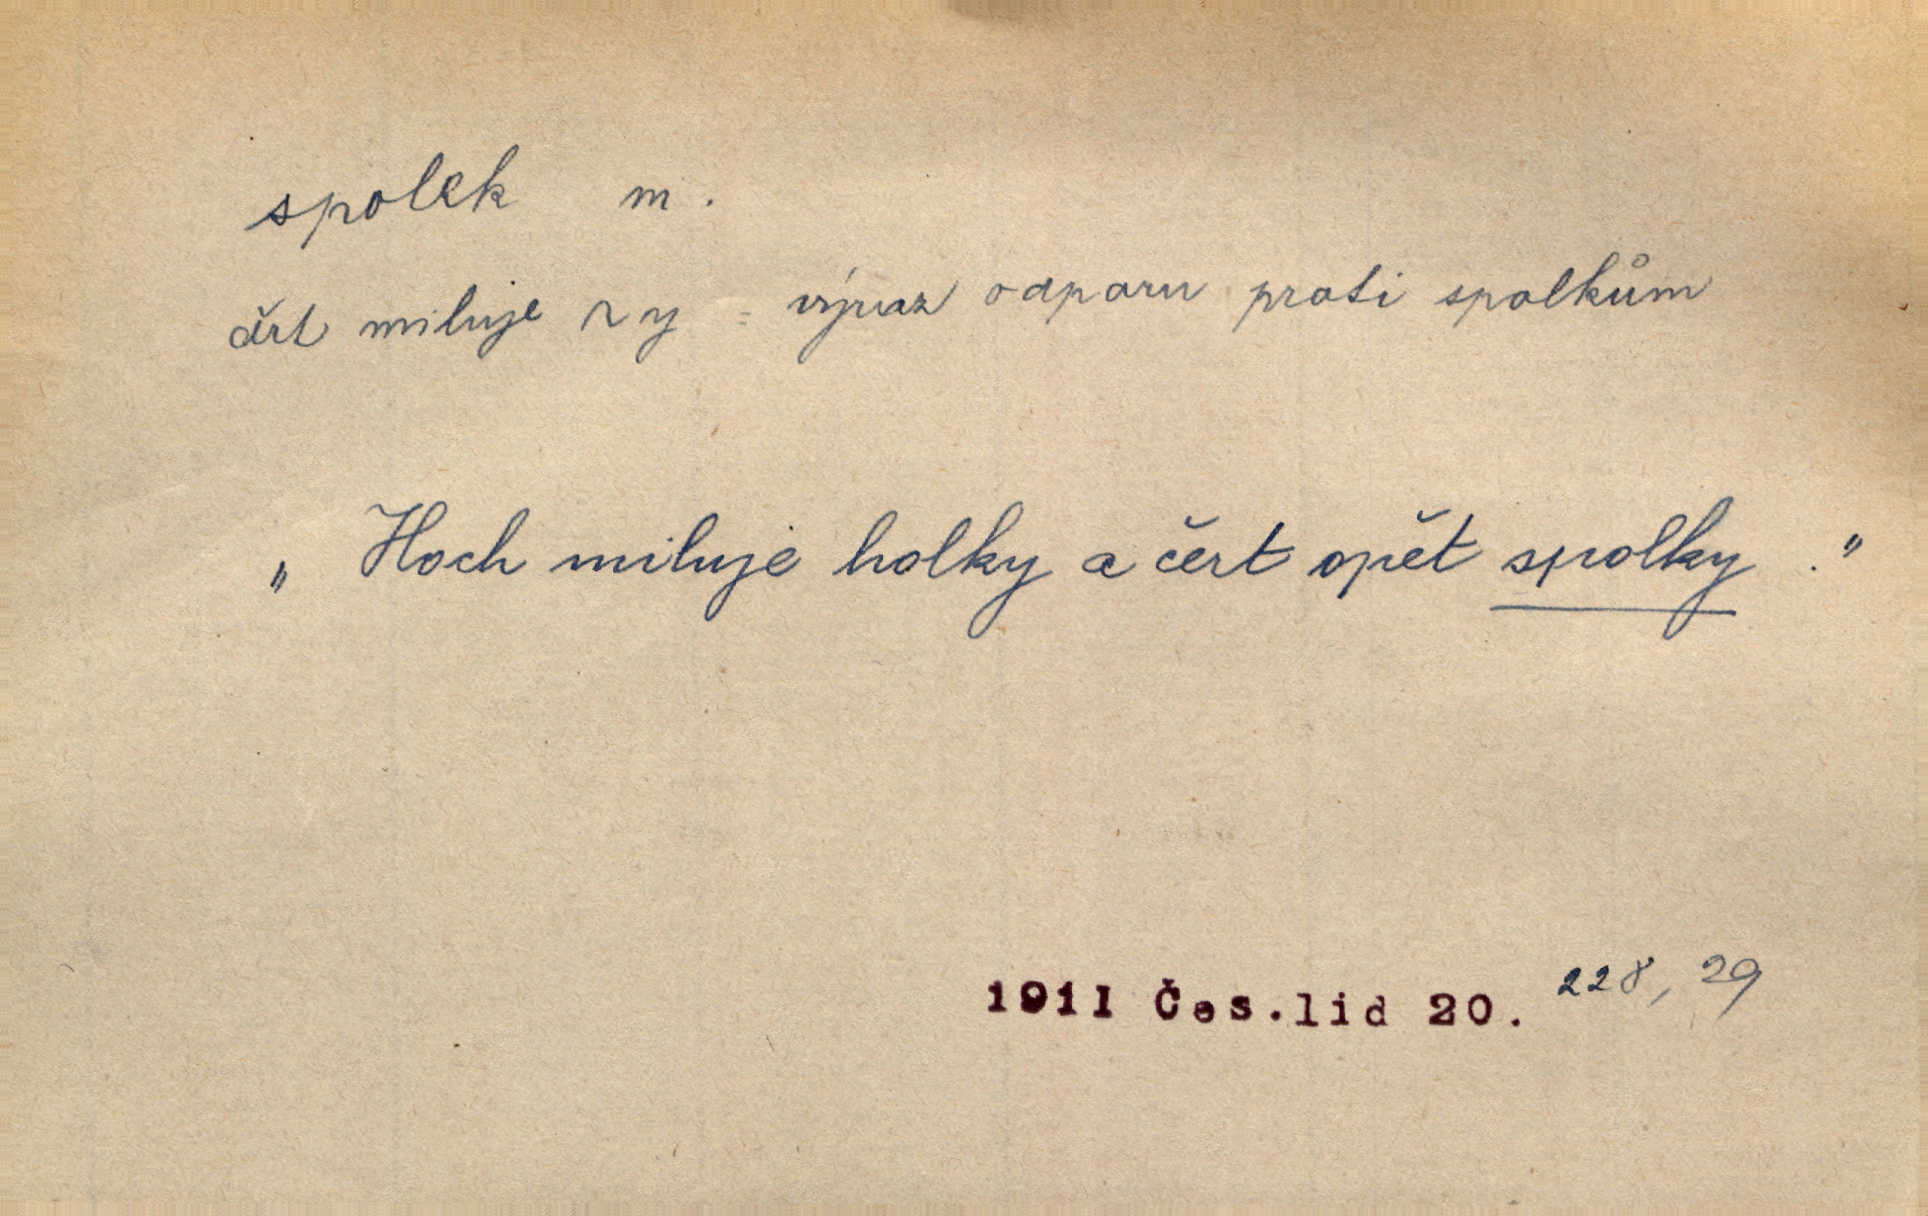 spolek m.
čert miluje ~ y = výraz odporu proti spolkům
„ Hoch miluje holky a čert opět spolky . "
1911 Čes.lid 20. 228, 29